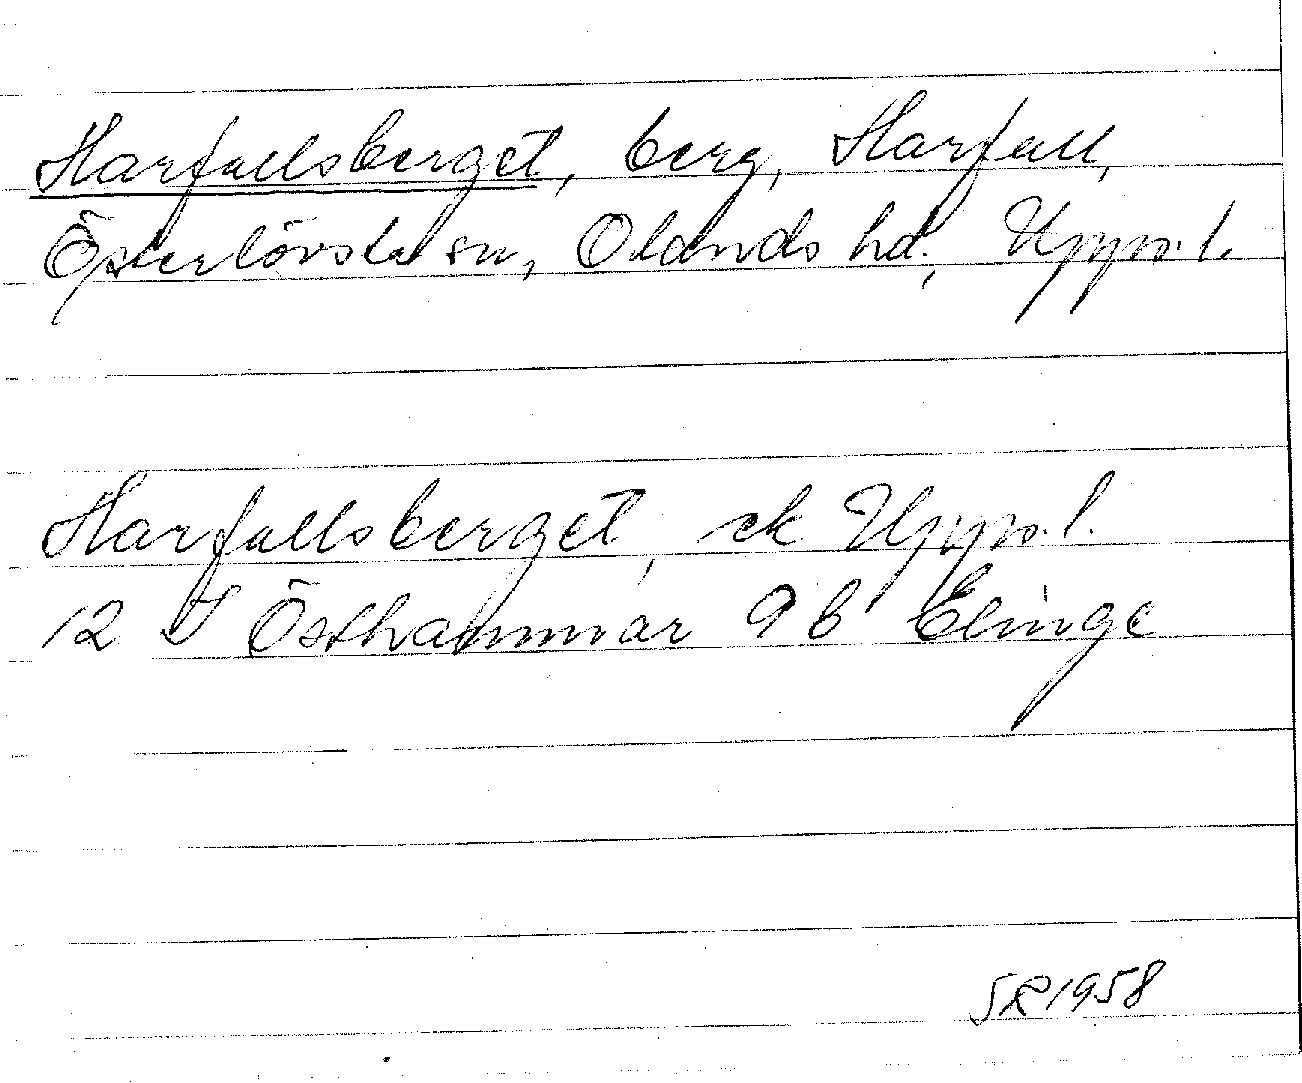 Harfallsberget, berg, Harfall,
Österlövsta sn, Olands hd., Upps. l.
Harfallsberget, ek Upps. l.
12 I Östhammar 9 b Elinge
SR 1958